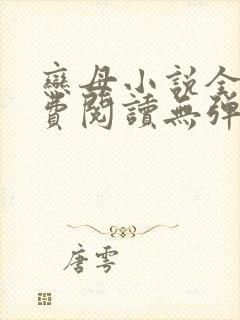 戀母小說全
費閱讀無彈
唐雲